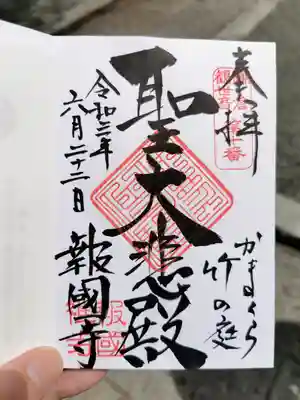 奉拝
かまくら
竹の庭
聖大悲殿
令和三年
六月二十二日
報國寺
報國